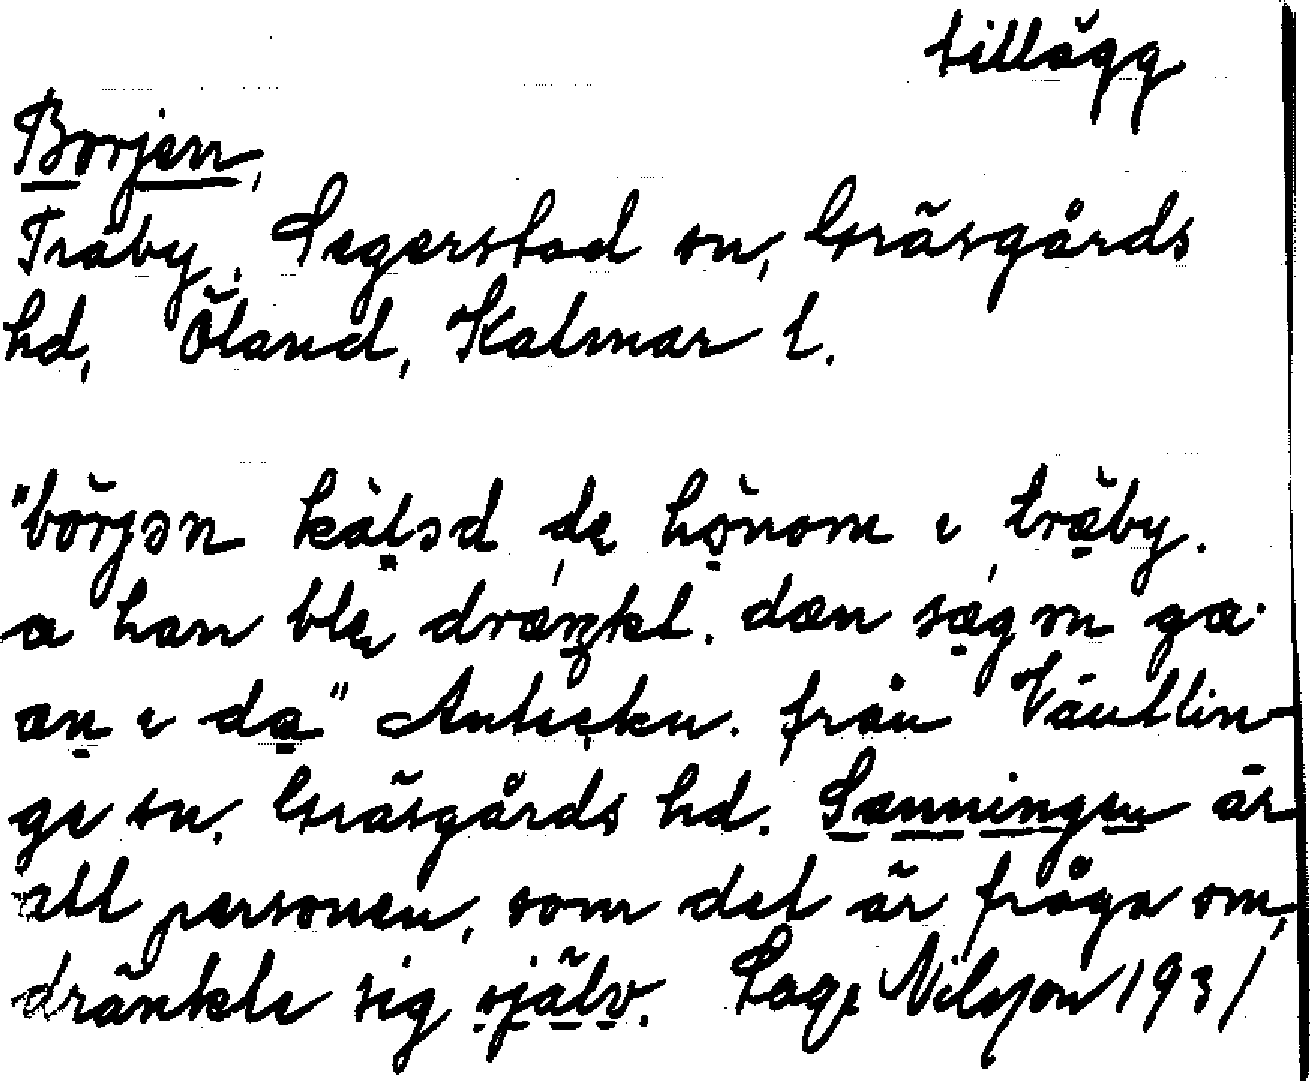 tillägg
Borjen,
Träby, Segerstad sn, Gräsgårds
hd, Öland, Kalmar l.
"börjən kaləd de hönom ι träby.
a han ble dræŋkt. dæn sægən gæ.
æn ι da" Anteckn. från Väntlin-
ge sn, Gräsgårds hd. Sanningen är
att personen, som det är fråga om,
dränkte sig själv. Sage Nilsson 1931